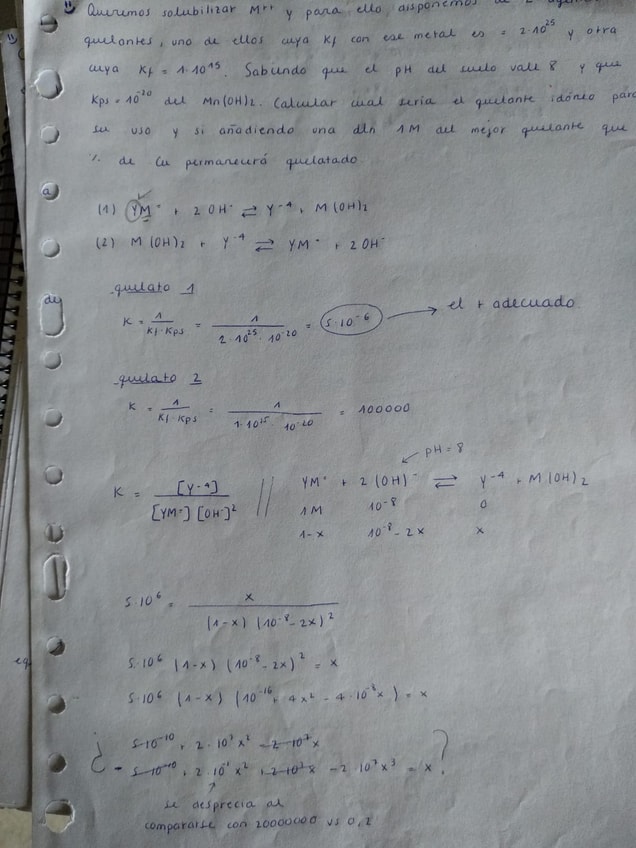 Queremos solubilizar M++ y para ello disponemos de 2 agentes
quelantes, uno de ellos cuya Kf con ese metal es = 2·10²⁵ y otra
cuya Kf = 1·10¹⁵. Sabiendo que el pH del suelo vale 8 y que
Kps = 10⁻²⁰ del Mn(OH)₂. Calcular cual seria el quelante idóneo para
su uso y si añadiendo una dln 1M del mejor quelante que
% de Cu permanecerá quelatado.
a
(1) YM⁼ + 2 OH⁻ ⇌ Y⁻⁴ + M(OH)₂
(2) M(OH)₂ + Y⁻⁴ ⇌ YM⁼ + 2OH⁻
de
quelato 1
K = 1/(Kf·Kps) = 1/(2·10²⁵·10⁻²⁰) = 5·10⁻⁶ → el + adecuado
quelato 2
K = 1/(Kf·Kps) = 1/(1·10¹⁵·10⁻²⁰) = 100000
pH = 8
K = [Y⁻⁴]/([YM⁼][OH⁻]²) // YM⁼ + 2(OH)⁻ ⇌ Y⁻⁴ + M(OH)₂
1M 10⁻⁸ 0
1-x 10⁻⁸-2x x
5·10⁶ = x/((1-x)(10⁻⁸-2x)²)
5·10⁶ (1-x) (10⁻⁸-2x)² = x
5·10⁶ (1-x) (10⁻¹⁶ + 4x² - 4·10⁻⁸x) = x
¿ 5·10⁻¹⁰ + 2·10⁷x² - 2·10⁷x
- 5·10⁻¹⁰ + 2·10⁷x² + 2·10⁷x - 2·10⁷x³ = x ?
se desprecia al
compararse con 20000000 vs 0,2